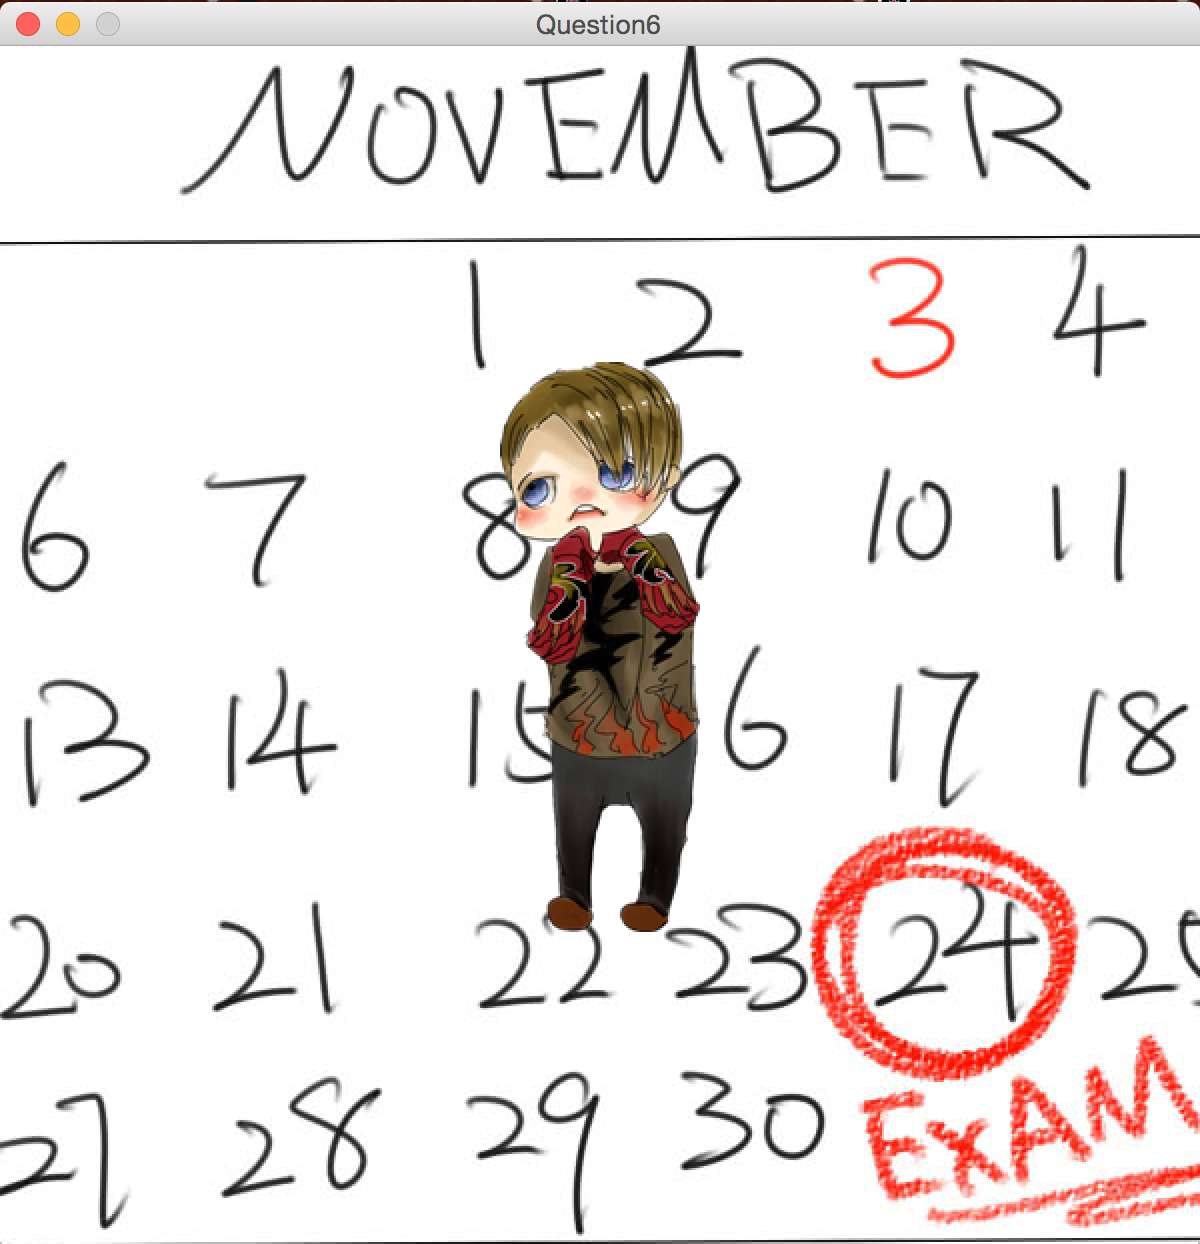 Question6
NOVEMBER
1 2 3 4
6 7 8 9 10 11
13 14 15 6 17 18
20 21 22 23 24 25
27 28 29 30 EXAM